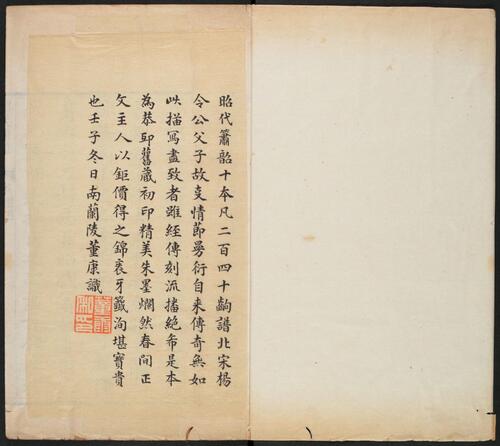 昭代簫韶十本凡二百四十齣譜北宋楊
令公父子故事情節曼衍自来傳奇無如
此描寫盡致者雖經傳刻流播絕希是本
為恭邸舊藏初印精美朱墨爛然春間正
文主人以鉅價得之錦裹牙籤洵堪寶貴
也壬子冬日南蘭陵董康識